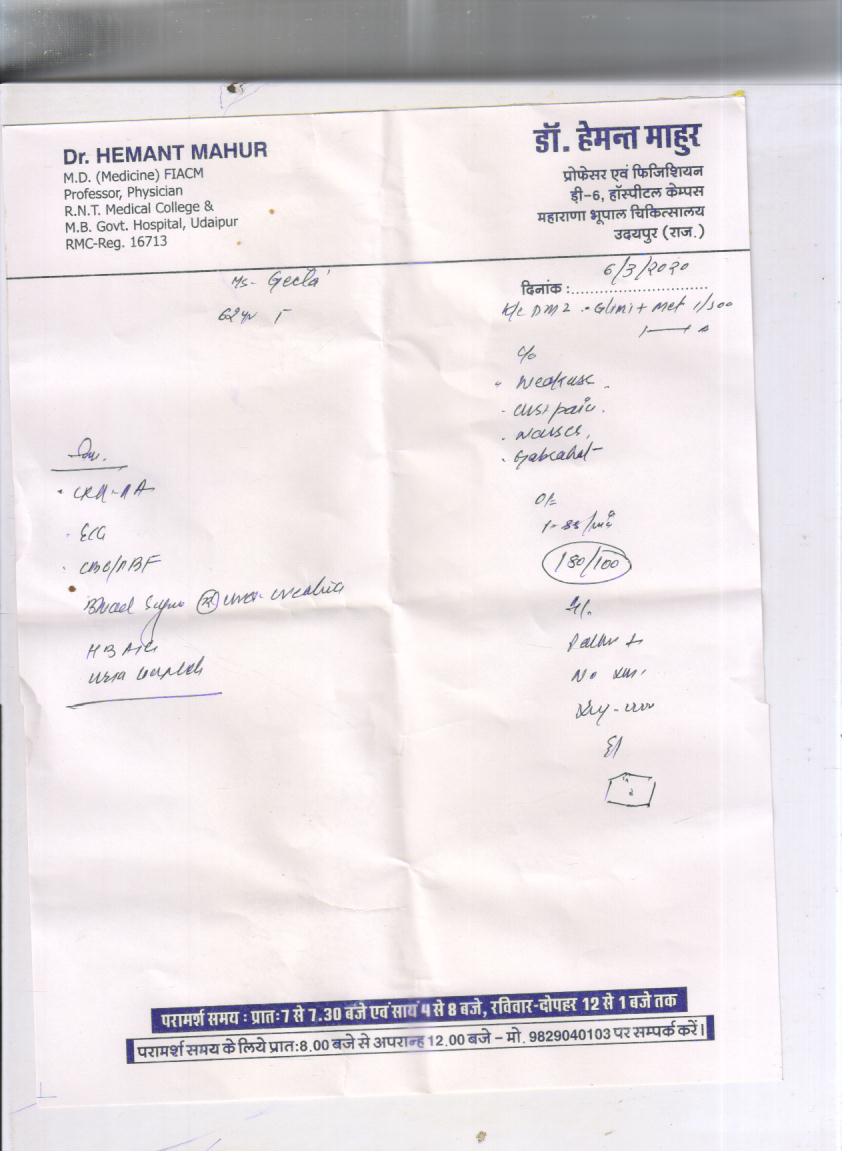 Dr. HEMANT MAHUR
M.D. (Medicine) FIACM
Professor, Physician
R.N.T. Medical College &
M.B. Govt. Hospital, Udaipur
RMC-Reg. 16713
डॉ. हेमन्त माहुर
प्रोफेसर एवं फिजिशियन
डी-6, हॉस्पीटल केम्पस
महाराणा भूपाल चिकित्सालय
उदयपुर (राज.)
Geeta
62 yr
दिनांक : 6/3/2020
K/c DM2 Glimi + Met 1/500
c/o
Weakness
Chest pain
Nausea
Gabrahat
O/E
180/100
Inv.
CXR-PA
ECG
CBC/PBF
Blood Sugar urea creatinine
HBA1C
Urine complete
परामर्श समय : प्रातः7 से 7.30 बजे एवं सायं 4 से 8 बजे, रविवार-दोपहर 12 से 1 बजे तक
परामर्श समय के लिये प्रातः8.00 बजे से अपरान्ह 12.00 बजे – मो. 9829040103 पर सम्पर्क करें।